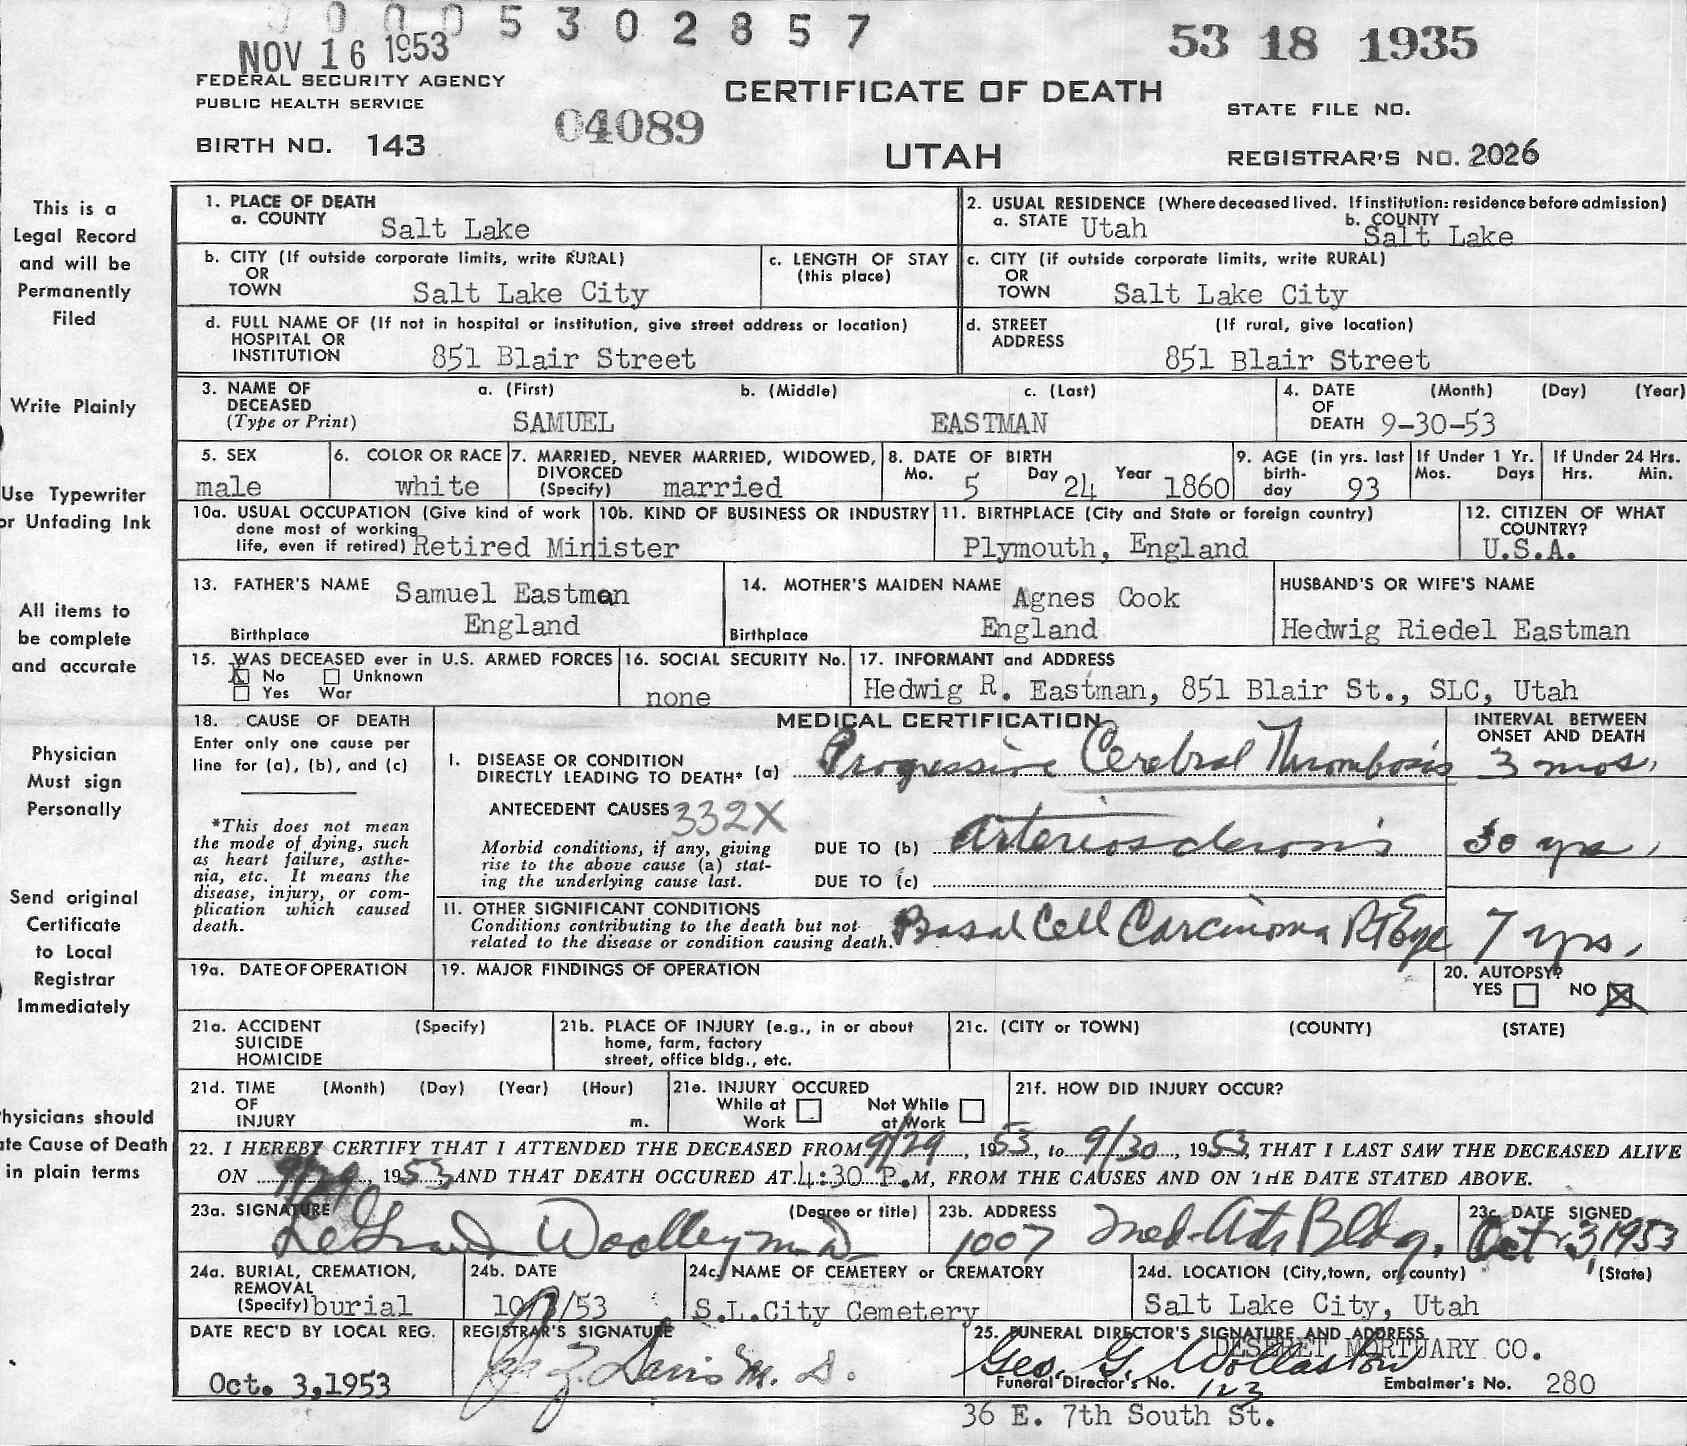 0 0 0 5 3 0 2 8 5 7
53 18 1935
NOV 16 1953
FEDERAL SECURITY AGENCY
PUBLIC HEALTH SERVICE
BIRTH NO. 143
04089
CERTIFICATE OF DEATH
UTAH
STATE FILE NO.
REGISTRAR'S NO. 2026
This is a
Legal Record
and will be
Permanently
Filed
Write Plainly
Use Typewriter
or Unfading Ink
All items to
be complete
and accurate
Physician
Must sign
Personally
Send original
Certificate
to Local
Registrar
Immediately
hysicians should
te Cause of Death
in plain terms
1. PLACE OF DEATH
a. COUNTY Salt Lake
2. USUAL RESIDENCE (Where deceased lived. If institution: residence before admission)
a. STATE Utah b. COUNTY Salt Lake
b. CITY (If outside corporate limits, write RURAL)
OR
TOWN Salt Lake City
c. LENGTH OF STAY
(this place)
c. CITY (if outside corporate limits, write RURAL)
OR
TOWN Salt Lake City
d. FULL NAME OF (If not in hospital or institution, give street address or location)
HOSPITAL OR
INSTITUTION 851 Blair Street
d. STREET (If rural, give location)
ADDRESS 851 Blair Street
3. NAME OF a. (First) b. (Middle) c. (Last)
DECEASED
(Type or Print) SAMUEL EASTMAN
4. DATE (Month) (Day) (Year)
OF
DEATH 9-30-53
5. SEX
male
6. COLOR OR RACE
white
7. MARRIED, NEVER MARRIED, WIDOWED,
DIVORCED
(Specify) married
8. DATE OF BIRTH
Mo. 5 Day 24 Year 1860
9. AGE (in yrs. last
birth-
day 93
If Under 1 Yr.
Mos. Days
If Under 24 Hrs.
Hrs. Min.
10a. USUAL OCCUPATION (Give kind of work
done most of working
life, even if retired) Retired Minister
10b. KIND OF BUSINESS OR INDUSTRY
11. BIRTHPLACE (City and State or foreign country)
Plymouth, England
12. CITIZEN OF WHAT
COUNTRY?
U.S.A.
13. FATHER'S NAME Samuel Eastman
Birthplace England
14. MOTHER'S MAIDEN NAME Agnes Cook
Birthplace England
HUSBAND'S OR WIFE'S NAME
Hedwig Riedel Eastman
15. WAS DECEASED ever in U.S. ARMED FORCES
No Unknown
Yes War
16. SOCIAL SECURITY No.
none
17. INFORMANT and ADDRESS
Hedwig R. Eastman, 851 Blair St., SLC, Utah
18. CAUSE OF DEATH
Enter only one cause per
line for (a), (b), and (c)
*This does not mean
the mode of dying, such
as heart failure, asthe-
nia, etc. It means the
disease, injury, or com-
plication which caused
death.
MEDICAL CERTIFICATION
INTERVAL BETWEEN
ONSET AND DEATH
I. DISEASE OR CONDITION
DIRECTLY LEADING TO DEATH* (a) Progressive Cerebral Thrombosis 3 mos.
ANTECEDENT CAUSES 332X
Morbid conditions, if any, giving
rise to the above cause (a) stat-
ing the underlying cause last.
DUE TO (b) arteriosclerosis 30 yrs.
DUE TO (c)
II. OTHER SIGNIFICANT CONDITIONS
Conditions contributing to the death but not
related to the disease or condition causing death. Basal Cell Carcinoma Rt Eye 7 yrs.
19a. DATE OF OPERATION
19. MAJOR FINDINGS OF OPERATION
20. AUTOPSY?
YES NO
21a. ACCIDENT (Specify)
SUICIDE
HOMICIDE
21b. PLACE OF INJURY (e.g., in or about
home, farm, factory
street, office bldg., etc.
21c. (CITY or TOWN) (COUNTY) (STATE)
21d. TIME (Month) (Day) (Year) (Hour)
OF
INJURY m.
21e. INJURY OCCURED
While at Work Not While at Work
21f. HOW DID INJURY OCCUR?
22. I HEREBY CERTIFY THAT I ATTENDED THE DECEASED FROM 9/29, 1953, to 9/30, 1953, THAT I LAST SAW THE DECEASED ALIVE
ON 9/29, 1953, AND THAT DEATH OCCURED AT 4:30 P.M, FROM THE CAUSES AND ON THE DATE STATED ABOVE.
23a. SIGNATURE (Degree or title)
LeGrand Woolley M.D.
23b. ADDRESS
1007 Med-Arts Bldg.
23c. DATE SIGNED
Oct. 3, 1953
24a. BURIAL, CREMATION,
REMOVAL
(Specify) burial
24b. DATE
10/ /53
24c. NAME OF CEMETERY or CREMATORY
S.L.City Cemetery
24d. LOCATION (City, town, or county) (State)
Salt Lake City, Utah
DATE REC'D BY LOCAL REG.
Oct. 3, 1953
REGISTRAR'S SIGNATURE
Davis M. D.
25. FUNERAL DIRECTOR'S SIGNATURE AND ADDRESS
DESERET MORTUARY CO.
Geo. G. Wollaston
Funeral Director's No. 123 Embalmer's No. 280
36 E. 7th South St.